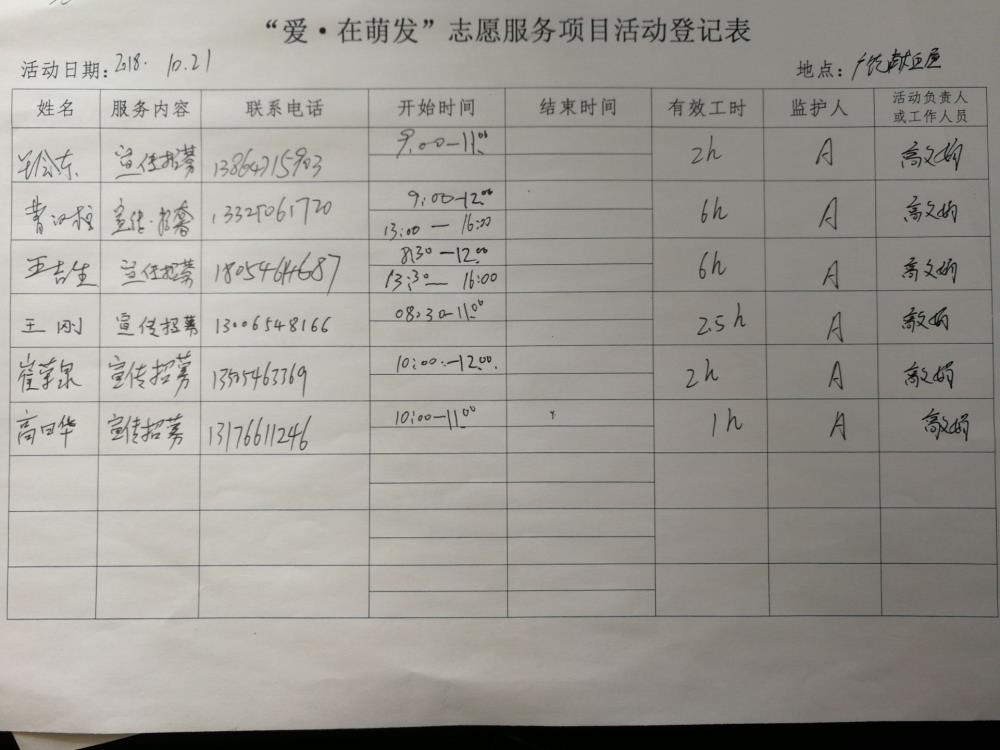 “爱·在萌发”志愿服务项目活动登记表
活动日期: 2018. 10.21 地点: 广饶献血屋
姓名 服务内容 联系电话 开始时间 结束时间 有效工时 监护人 活动负责人或工作人员
宣传招募 9:00-11:00 2h A 高文娟
曹汉柱 宣传·招募 9:00-12:00 6h A 高文娟
13:00-16:00
王吉生 宣传招募 18054644687 8:30-12:00 6h A 高文娟
13:30-16:00
王刚 宣传招募 13006548166 08:30-11:00 2.5h A 高文娟
崔荣泉 宣传招募 13505463369 10:00-12:00. 2h A 高文娟
高曰华 宣传招募 13176611246 10:00-11:00 1h A 高文娟